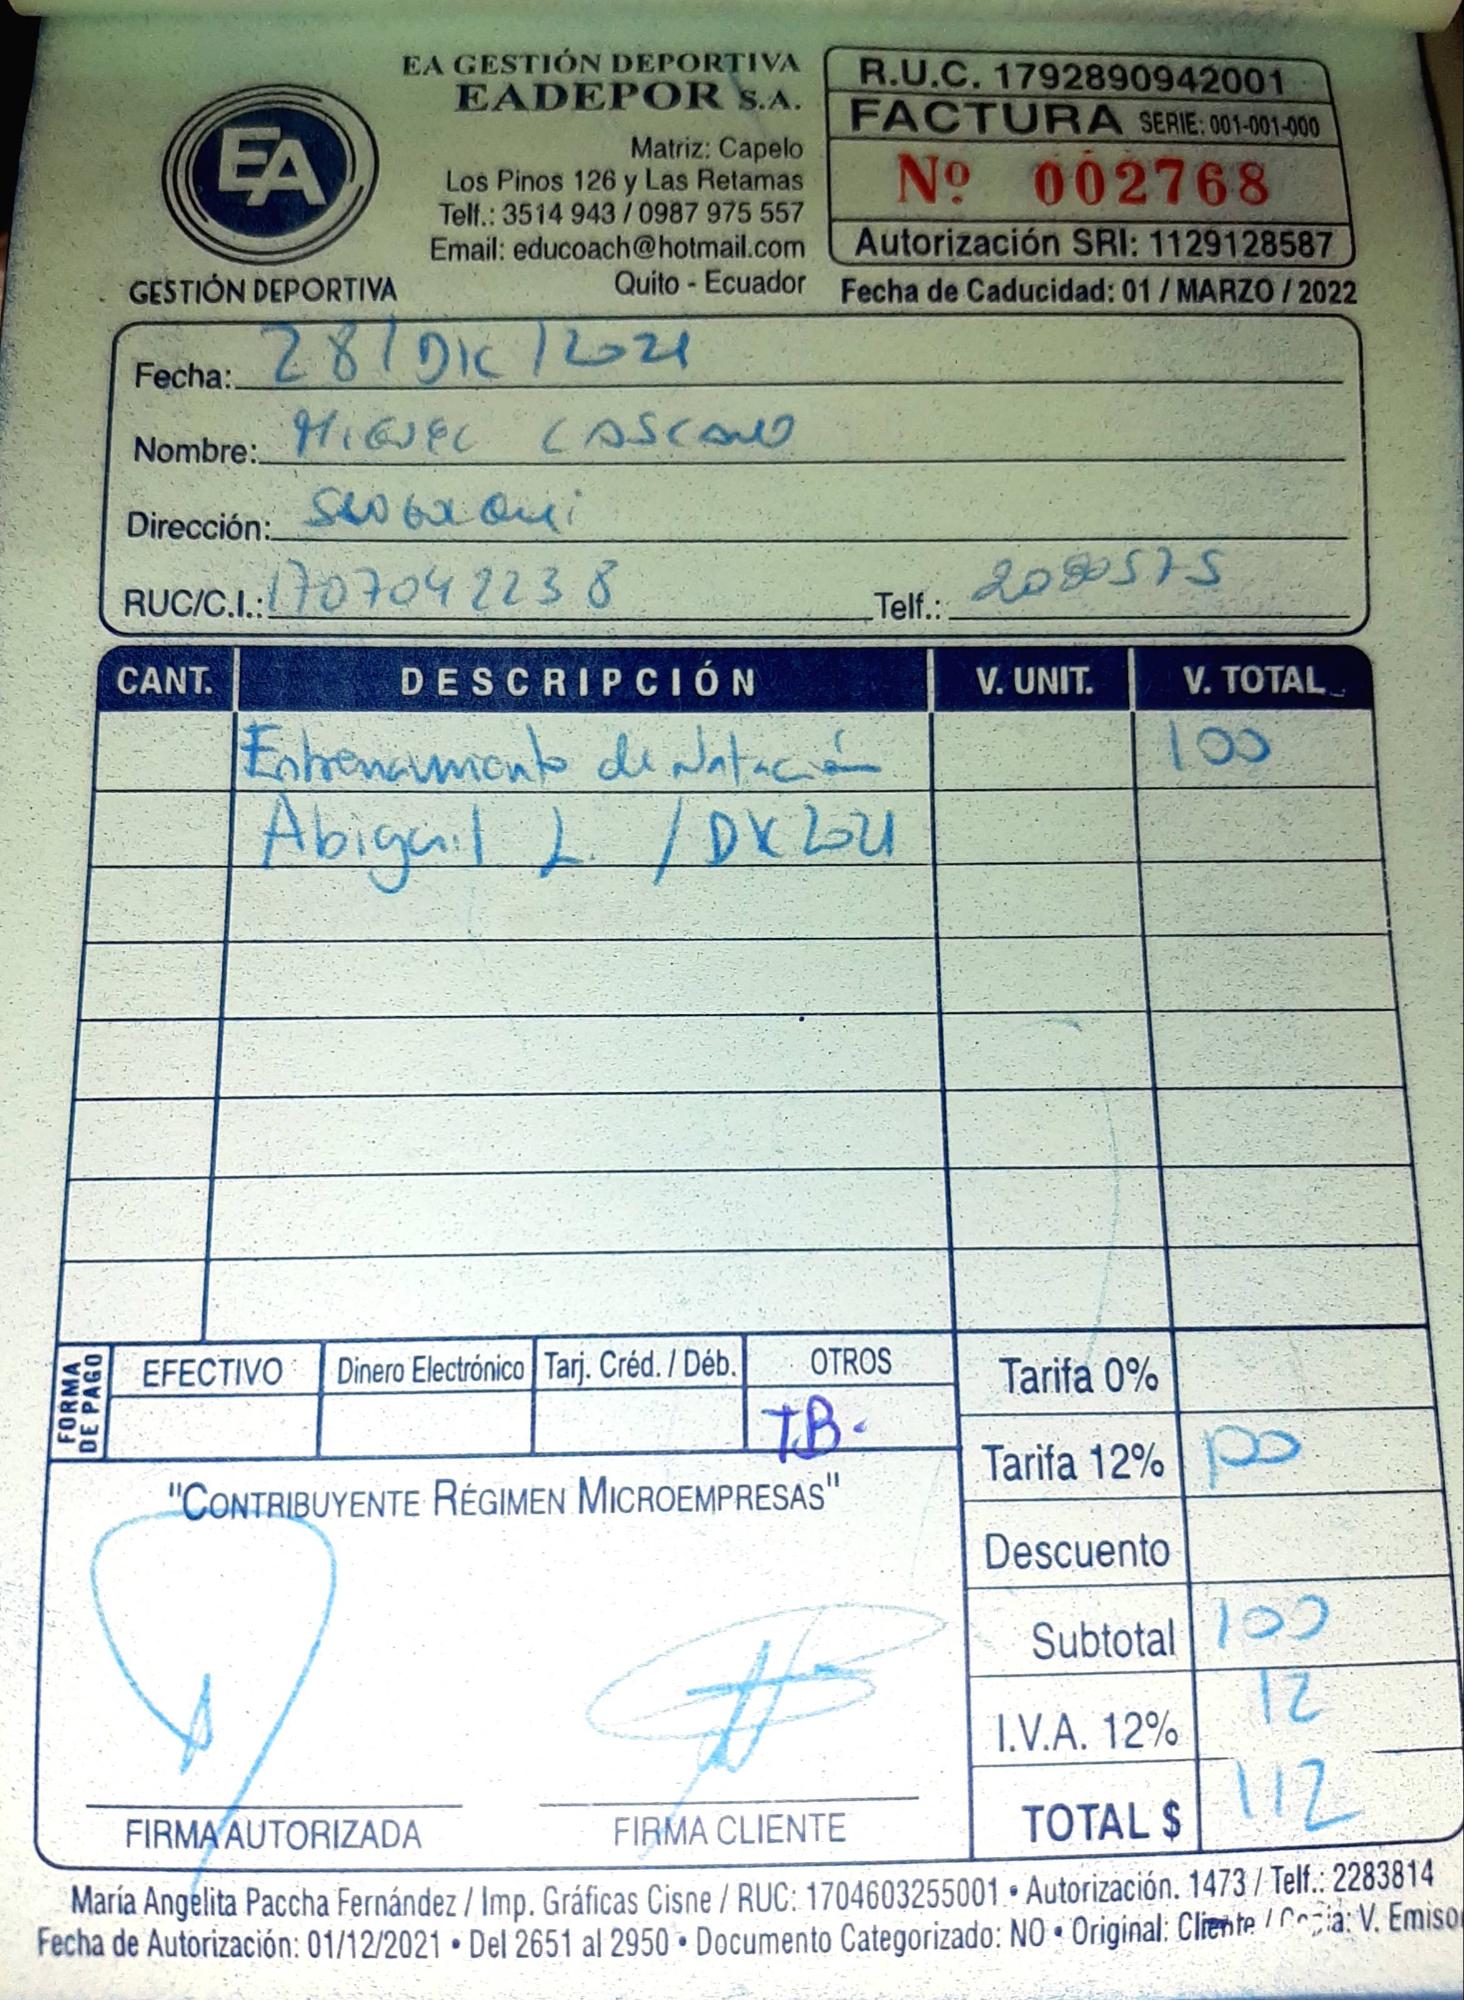 EA GESTIÓN DEPORTIVA
EADEPOR S.A.
Matriz: Capelo
Los Pinos 126 y Las Retamas
Telf.: 3514 943 / 0987 975 557
Email: educoach@hotmail.com
Quito - Ecuador
EA
GESTIÓN DEPORTIVA
R.U.C. 1792890942001
FACTURA SERIE: 001-001-000
Nº 002768
Autorización SRI: 1129128587
Fecha de Caducidad: 01 / MARZO / 2022
Fecha: 28 / Dic / 2021
Nombre: MIGUEL CASCANO
Dirección:
RUC/C.I.: 1707042238 Telf.: 2080575
CANT. DESCRIPCIÓN V. UNIT. V. TOTAL
Entrenamiento de Natación 100
Abigail L. / Dic 2021
FORMA DE PAGO
EFECTIVO Dinero Electrónico Tarj. Créd. / Déb. OTROS
T.B.
Tarifa 0%
Tarifa 12% 100
Descuento
Subtotal 100
I.V.A. 12% 12
TOTAL $ 112
"CONTRIBUYENTE RÉGIMEN MICROEMPRESAS"
FIRMA AUTORIZADA FIRMA CLIENTE
María Angelita Paccha Fernández / Imp. Gráficas Cisne / RUC: 1704603255001 • Autorización. 1473 / Telf.: 2283814
Fecha de Autorización: 01/12/2021 • Del 2651 al 2950 • Documento Categorizado: NO • Original: Cliente / Copia: V. Emisor